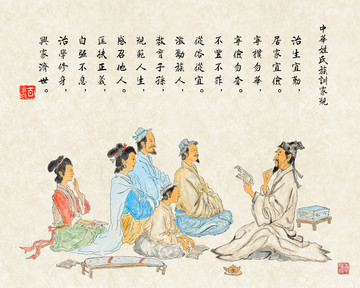 中華姓氏族訓家規
治生宜勤，
居家宜儉。
寧樸勿華，
寧儉勿奢。
不豐不菲，
從俗從宜。
激勸族人，
教育子孫。
規範人生，
感召他人。
匡扶正義，
自强不息，
治學修身，
興家濟世。